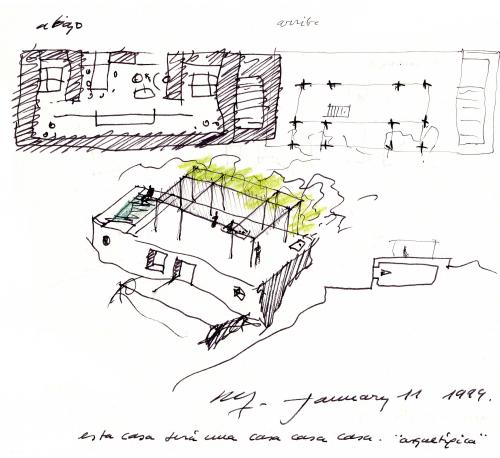 abajo
arriba
January 11 1999.
esta casa será una casa casa casa. "arquetípica"